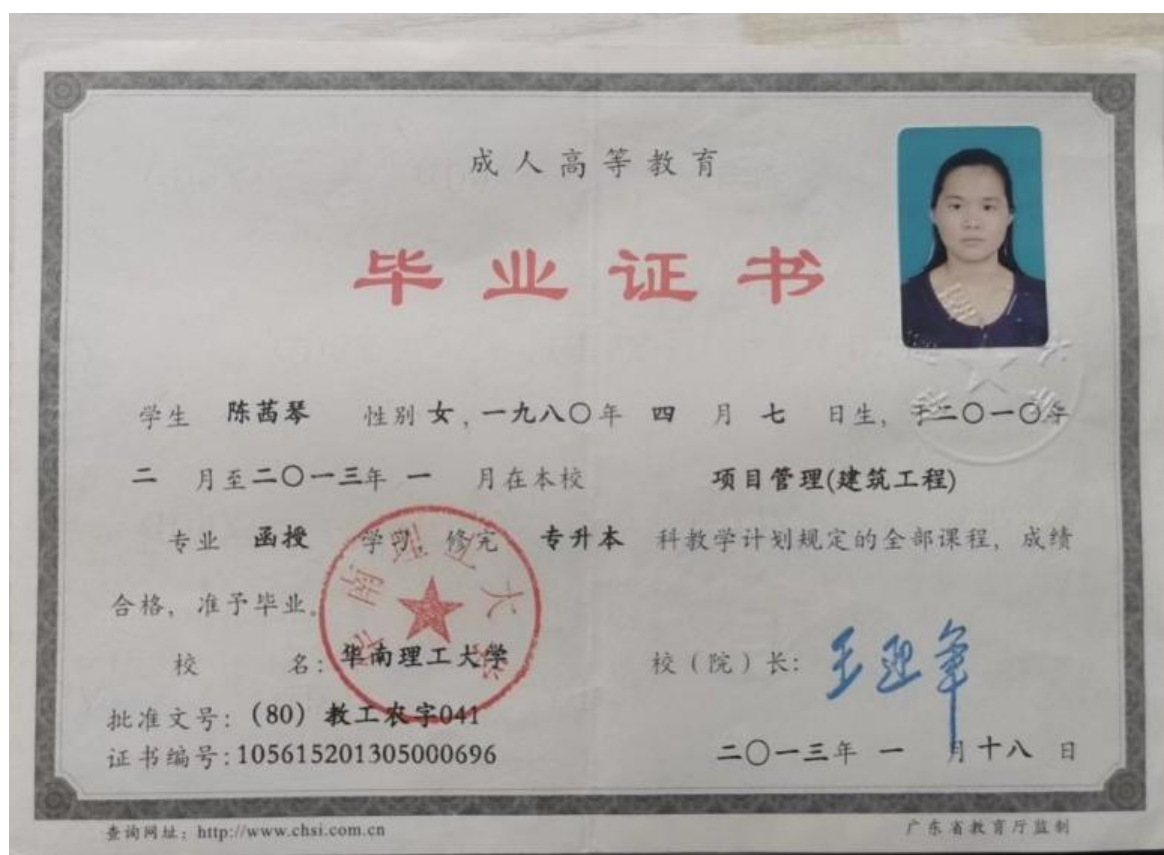 成人高等教育
毕业证书
学生 陈茜琴 性别 女，一九八〇年 四 月 七 日生，于二〇一〇年
二 月至二〇一三年 一 月在本校 项目管理(建筑工程)
专业 函授 学习，修完 专升本 科教学计划规定的全部课程，成绩
合格，准予毕业。
华南理工大学
校 名：华南理工大学
校（院）长：王迎军
批准文号：(80) 教工农字041
证书编号：105615201305000696
二〇一三年 一 月十八 日
查询网址：http://www.chsi.com.cn
广东省教育厅监制